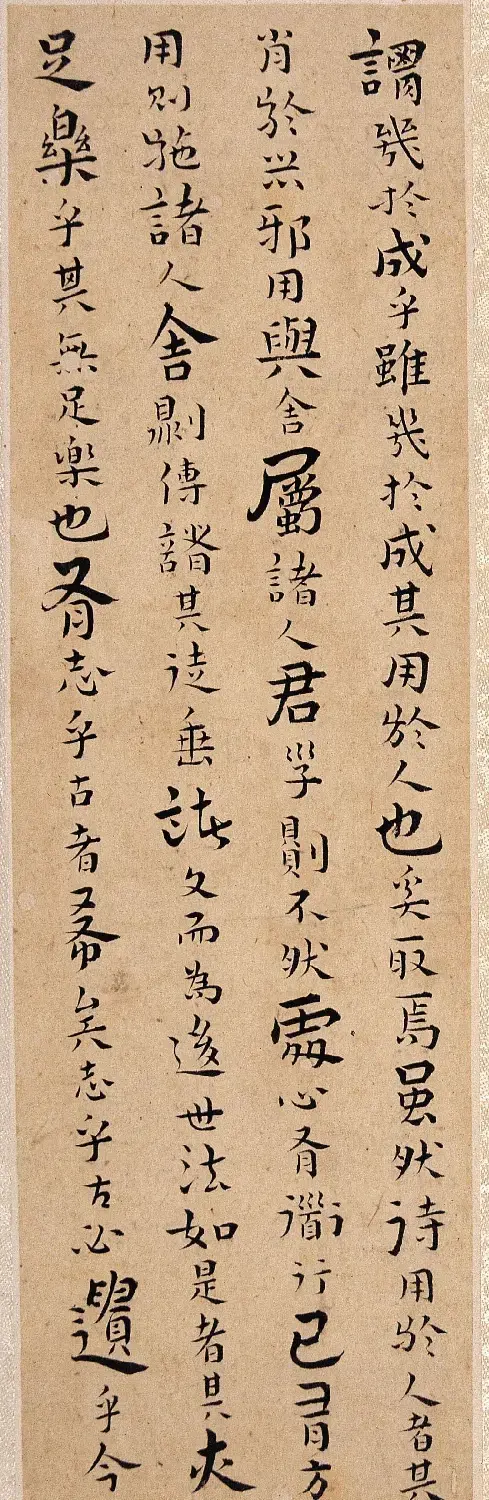 謂幾於成乎雖幾於成其用於人也奚取焉雖然待用於人者其
肖於器邪用與舍屬諸人君子則不然處心有道行己有方
用則施諸人舍則傳諸其徒垂諸文而為後世法如是者其亦
足樂乎其無足樂也有志乎古者希矣志乎古必遺乎今